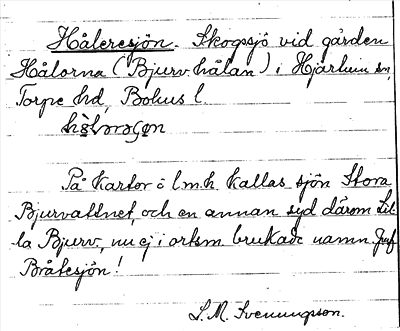 Håleresjön. Skogssjö vid gården
Hålorna (Bjurv. hålan) i Hjärtum sn,
Torpe hd, Bohus l.
På kartor ö l.m.h. kallas sjön Stora
Bjurvattnet, och en annan syd därom Lil-
la Bjurv., nu ej i ortsm. brukade namn. Jmf
Bråtesjön!
S. M. Svenungsson.